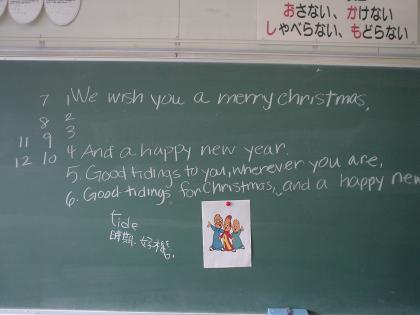 おさない、かけない
しゃべらない、もどらない
7 1 We wish you a merry christmas,
8 2
11 9 3
12 10 4 And a happy new year.
5. Good tidings to you, wherever you are,
6. Good tidings for christmas, and a happy new
tide
時期・好機.